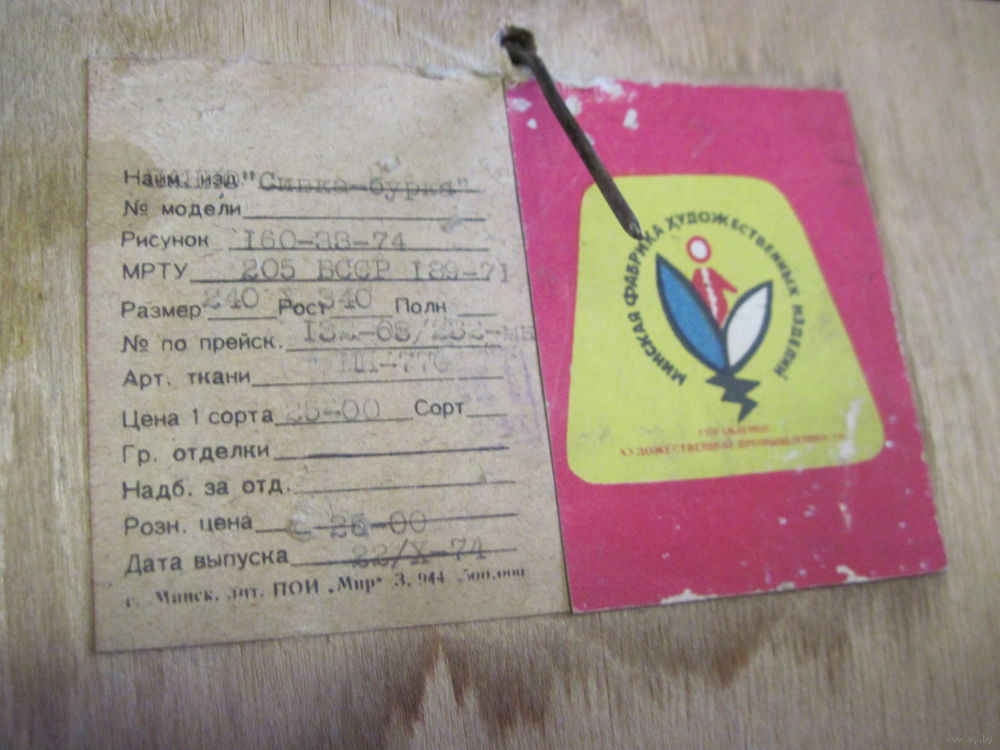 Наим. изд "Сивка-бурка"
№ модели
Рисунок 160-38-74
МРТУ 205 БССР 189-71
Размер 240 Рост 340 Полн
№ по прейск.
Арт. ткани
Цена 1 сорта 25-00 Сорт
Гр. отделки
Надб. за отд.
Розн. цена 25-00
Дата выпуска 22/X-74
г. Минск, лит. ПОИ „Мир" З. 944 500.000
МИНСКАЯ ФАБРИКА ХУДОЖЕСТВЕННЫХ ИЗДЕЛИЙ
УПРАВЛЕНИЕ
ХУДОЖЕСТВЕННОЙ ПРОМЫШЛЕННОСТИ
www.ay.by